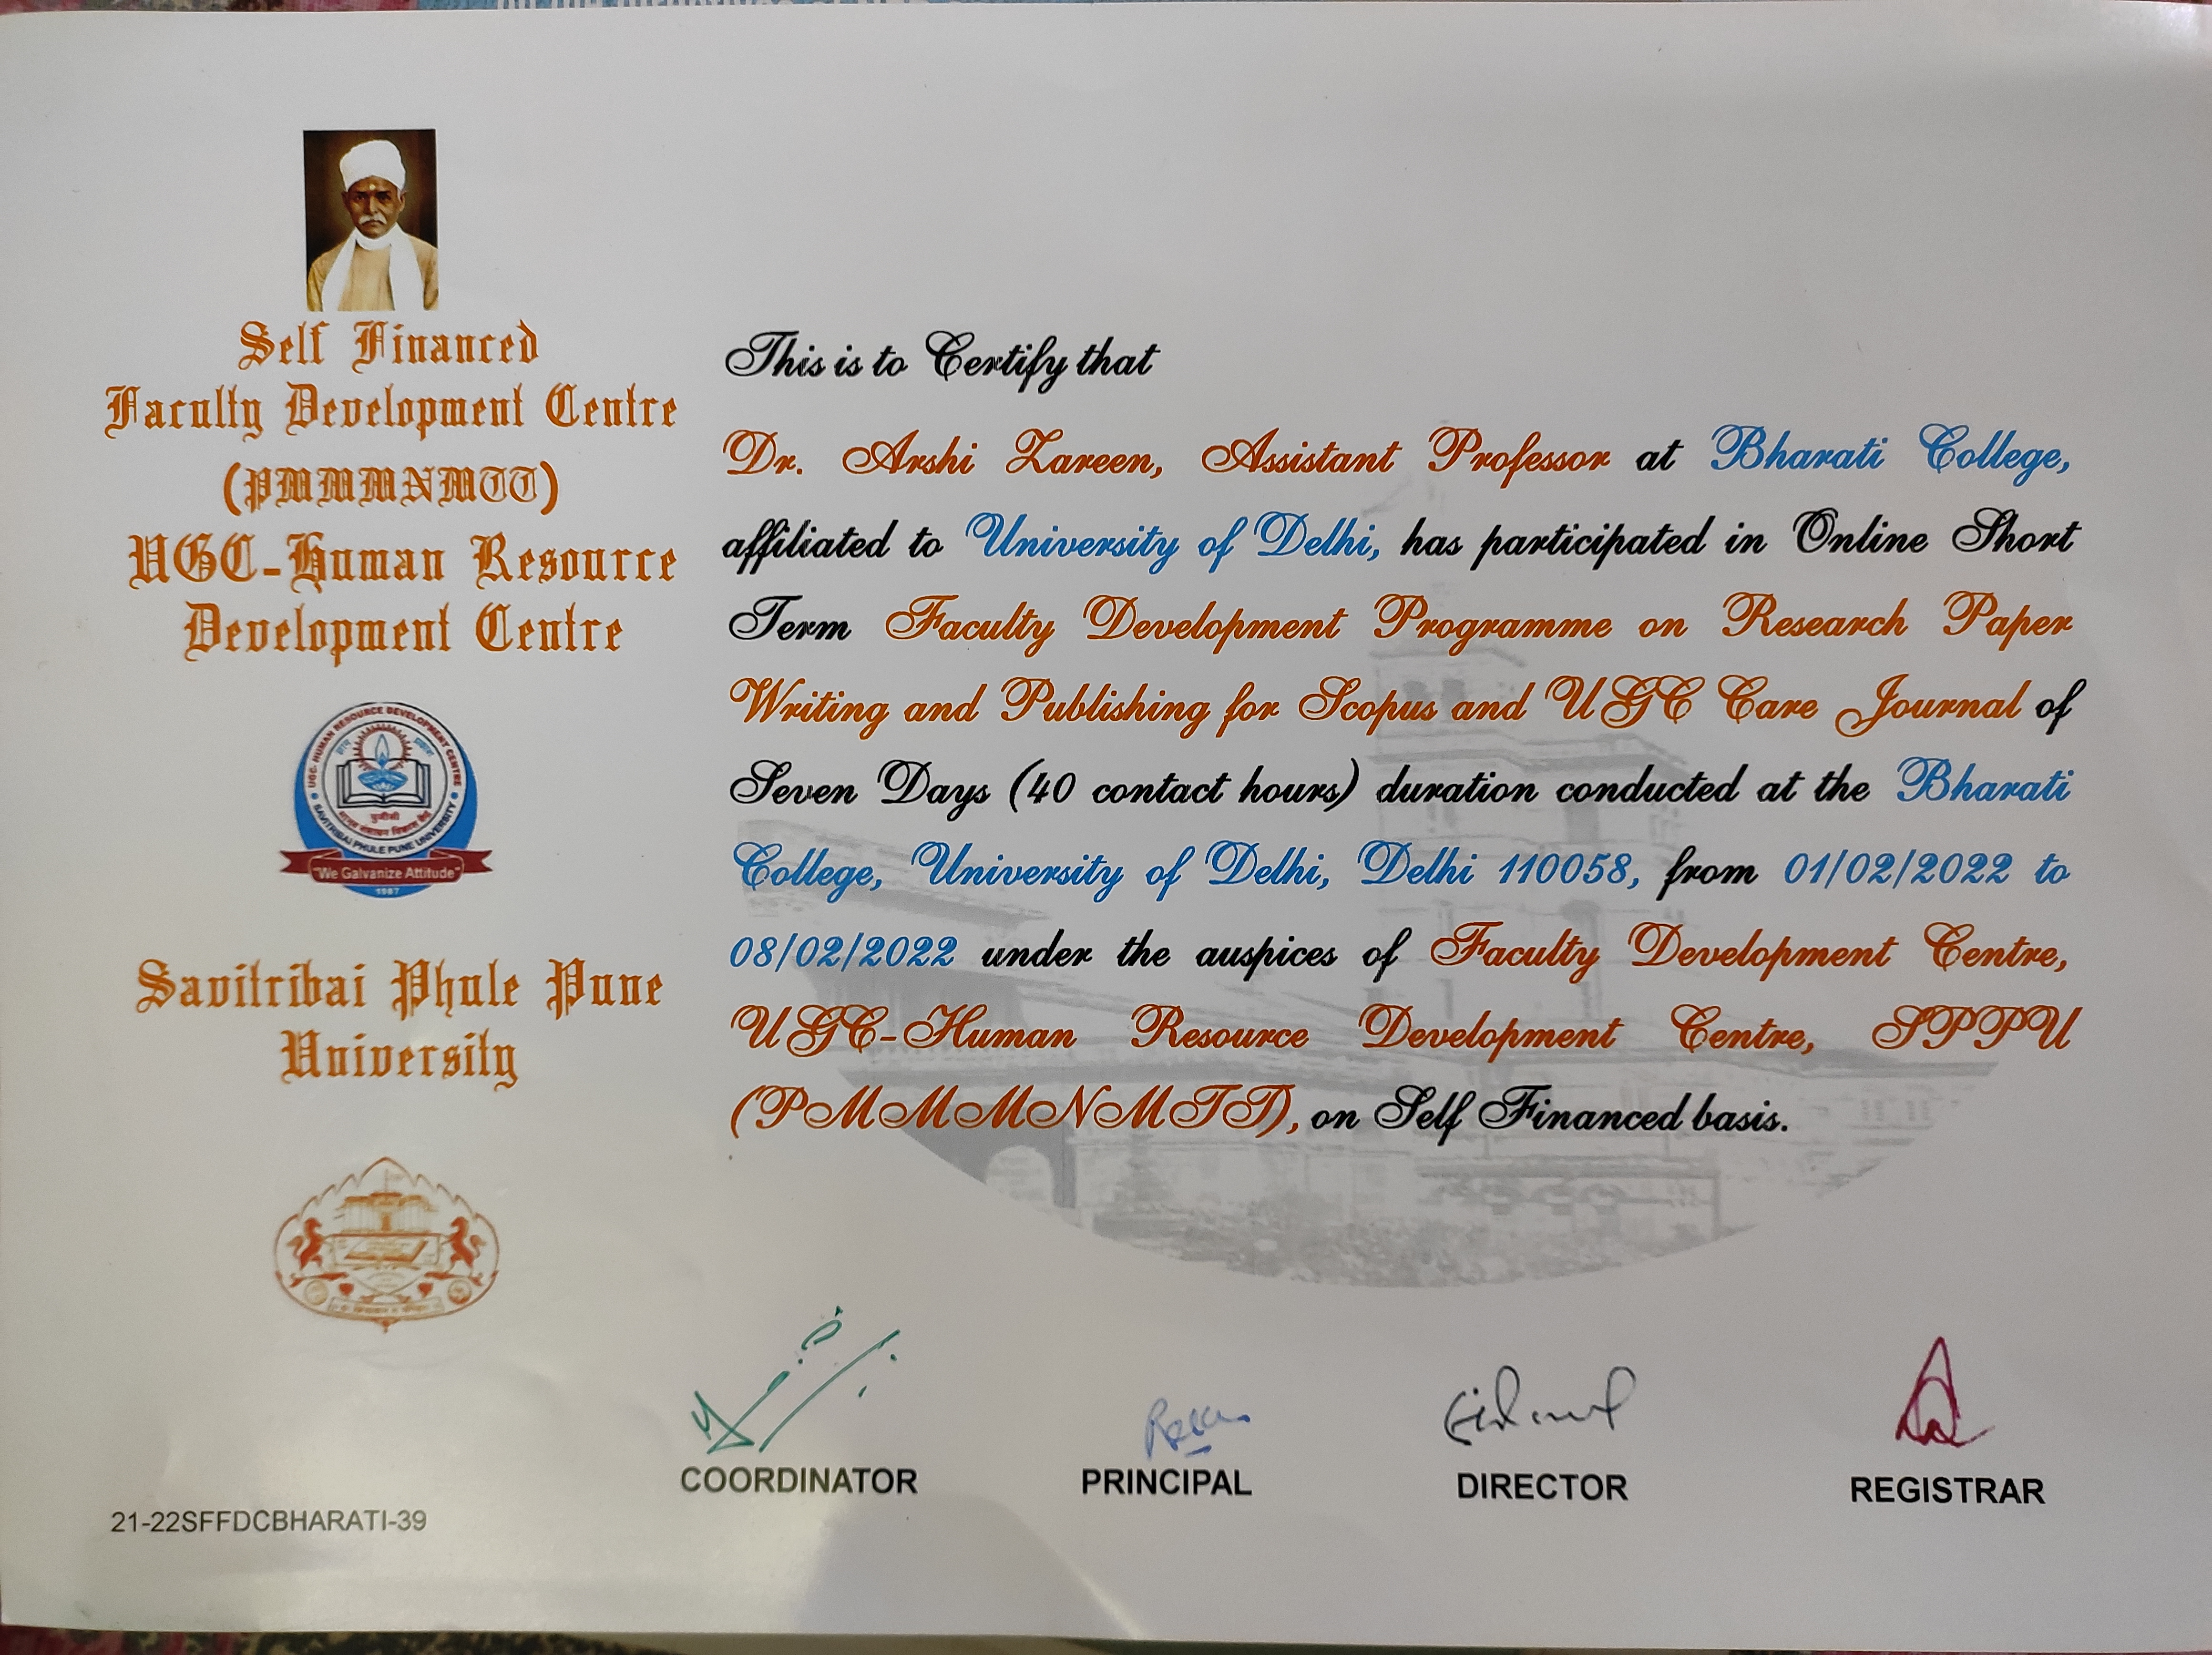 Self Financed
Faculty Development Centre
(PMMMNMTT)
UGC-Human Resource
Development Centre
UGC- HUMAN RESOURCE DEVELOPMENT CENTRE
SAVITRIBAI PHULE PUNE UNIVERSITY
"We Galvanize Attitude"
1987
Savitribai Phule Pune
University
This is to Certify that
Dr. Arshi Zareen, Assistant Professor at Bharati College,
affiliated to University of Delhi, has participated in Online Short
Term Faculty Development Programme on Research Paper
Writing and Publishing for Scopus and UGC Care Journal of
Seven Days (40 contact hours) duration conducted at the Bharati
College, University of Delhi, Delhi 110058, from 01/02/2022 to
08/02/2022 under the auspices of Faculty Development Centre,
UGC-Human Resource Development Centre, SPPU
(PMMMNMTT), on Self Financed basis.
COORDINATOR
PRINCIPAL
DIRECTOR
REGISTRAR
21-22SFFDCBHARATI-39